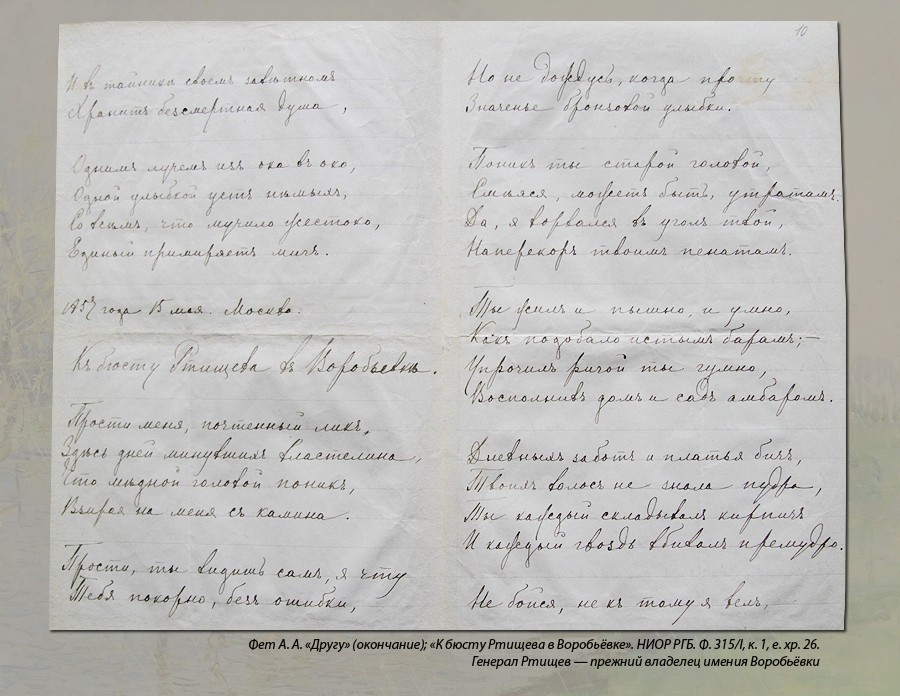 И въ тайникѣ своемъ завѣтномъ
Хранитъ безсмертная душа,
Однимъ лучемъ изъ ока въ око,
Одной улыбкой устъ нѣмыхъ,
Со всѣмъ, что мучило жестоко,
Единый примиряетъ мигъ.
1857 года 15 мая. Москва.
Къ бюсту Ртищева въ Воробьевкѣ.
Прости меня, почтенный ликъ,
Здѣсь дней минувшихъ властелина,
Что мѣдной головой поникъ,
Взирая на меня съ камина.
Прости, ты видишь самъ, я чту
Тебя покорно, безъ ошибки,
10
Но не дождусь, когда прочту
Значенье бронзовой улыбки.
Поникъ ты старой головой,
Смѣяся, можетъ быть, утратамъ.
Да, я ворвался въ уголъ твой,
Наперекоръ твоимъ пенатамъ.
Ты жилъ и пышно, и умно,
Какъ подобало истымъ барамъ;–
Упрочилъ ригой ты гумно,
Восполнивъ домъ и садъ амбаромъ.
Дневныхъ заботъ и платья бичъ,
Твоихъ волосъ не знала пудра,
Ты каждый складывалъ кирпичъ
И каждый гвоздь вбивалъ премудро.
Не бойся, не къ тому я велъ,
Фет А. А. «Другу» (окончание); «К бюсту Ртищева в Воробьёвке». НИОР РГБ. Ф. 315/I, к. 1, е. хр. 26.
Генерал Ртищев — прежний владелец имения Воробьёвки